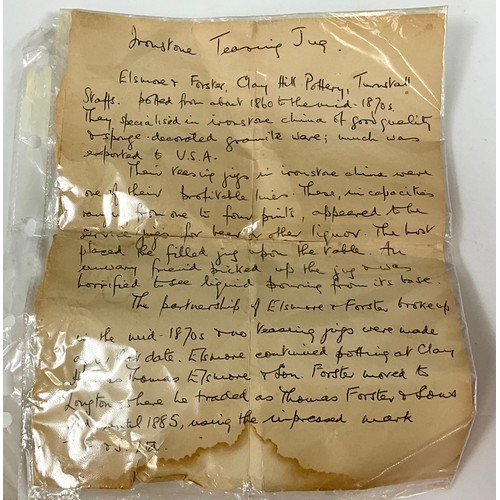 Ironstone Teasing Jug.
Elsmore & Forster, Clay Hill Pottery, Tunstall
Staffs. potted from about 1860 to the mid-1870s
They specialised in ironstone china of good quality
& sponge-decorated granite ware; much was
exported to U.S.A.
Their teasing jugs in ironstone china were
one of their profitable lines. These, in capacities
ranging from one to four pints, appeared to be
service jugs for beer or other liquor. The host
placed the filled jug upon the table. An
unwary friend picked up the jug & was
horrified to see liquid pouring from its base.
The partnership of Elsmore & Forster broke up
in the mid-1870s & no teasing jugs were made
after date. Elsmore continued potting at Clay
Hill as Thomas Elsmore & Son. Forster moved to
Longton where he traded as Thomas Forster & Sons
until 1885, using the impressed mark